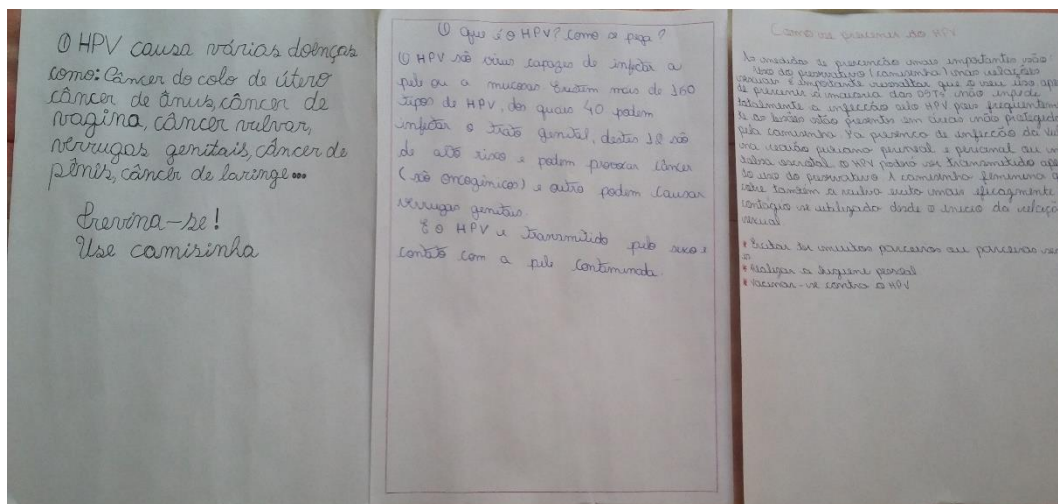 O HPV causa várias doenças
como: Câncer do colo de útero
câncer de ânus, câncer de
vagina, câncer vulvar,
verrugas genitais, câncer de
pênis, câncer de laringe...
Previna-se!
Use camisinha
O que é o HPV? Como se pega?
O HPV são vírus capazes de infectar a
pele ou a mucosas. Existem mais de 160
tipos de HPV, dos quais 40 podem
infectar o trato genital, destes 12 são
de alto risco e podem provocar câncer
(são oncogênicos) e outro podem causar
verrugas genitais.
E o HPV é transmitido pelo sexo e
contato com a pele contiminada.
Como se prevenir do HPV
As medidas de prevenção mais importantes são:
Uso do preservativo (camisinha) nas relações
sexuais é importante ressaltar que o seu uso apesar
de prevenir a maioria das DSTs não impede
totalmente a infecção pelo HPV pois frequentemen
te as lesões estão presentes em áreas não protegidas
pela camisinha. Na presença de infecção da vul
na região pubiana perineal e perianal ou na
bolsa escrotal. o HPV poderá ser transmitido apesar
do uso do preservativo A camisinha feminina que
cobre também a vulva evita mais eficazmente o
contágio se utilizado desde o início da relação
sexual
* Evitar ter muitos parceiros ou parceiras
* Realizar a higiene pessoal
* Vacinar-se contra o HPV